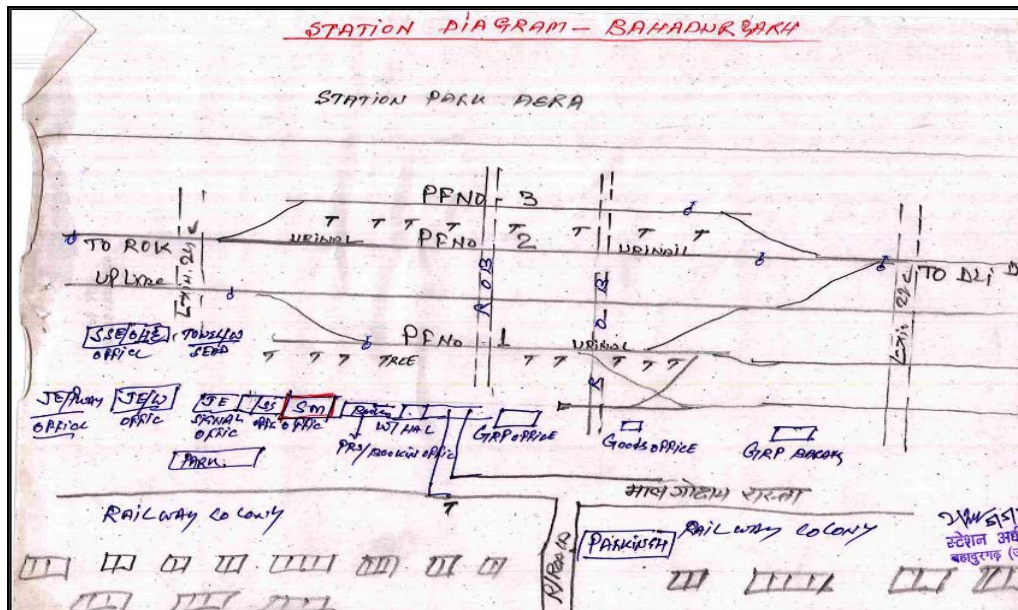 STATION DIAGRAM - BAHADURGARH
STATION PARK AERA
PFNO - 3
T T T T T T T T
TO ROK
URINAL
PFNO 2
URINAIL
TO DLI
UP LINE
ROB
ROB
SSE/OHE
OFFICE
PFNO 1
URINAL
T T T TREE T T T T T
JE/PWAY
OFFICE
JE/W
OFFIC
JE
SIGNAL
OFFIC
SS
OFFIC
SM
OFFIC
W/HAL
PRS/BOOKIN OFFIC
GRP OFFICE
Goods OFFICE
GRP
PARK.
माल गोदाम रास्ता
RAILWAY COLONY
T
R/ROAD
PARKINGH
RAILWAY COLONY
स्टेशन
बहादुरगढ़